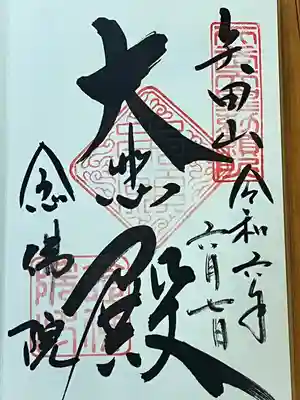 矢田山
令和六年
六月七日
大悲殿
念佛院